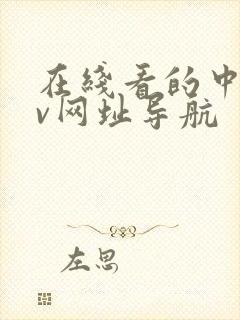 在线看的中
v网址导航
左思